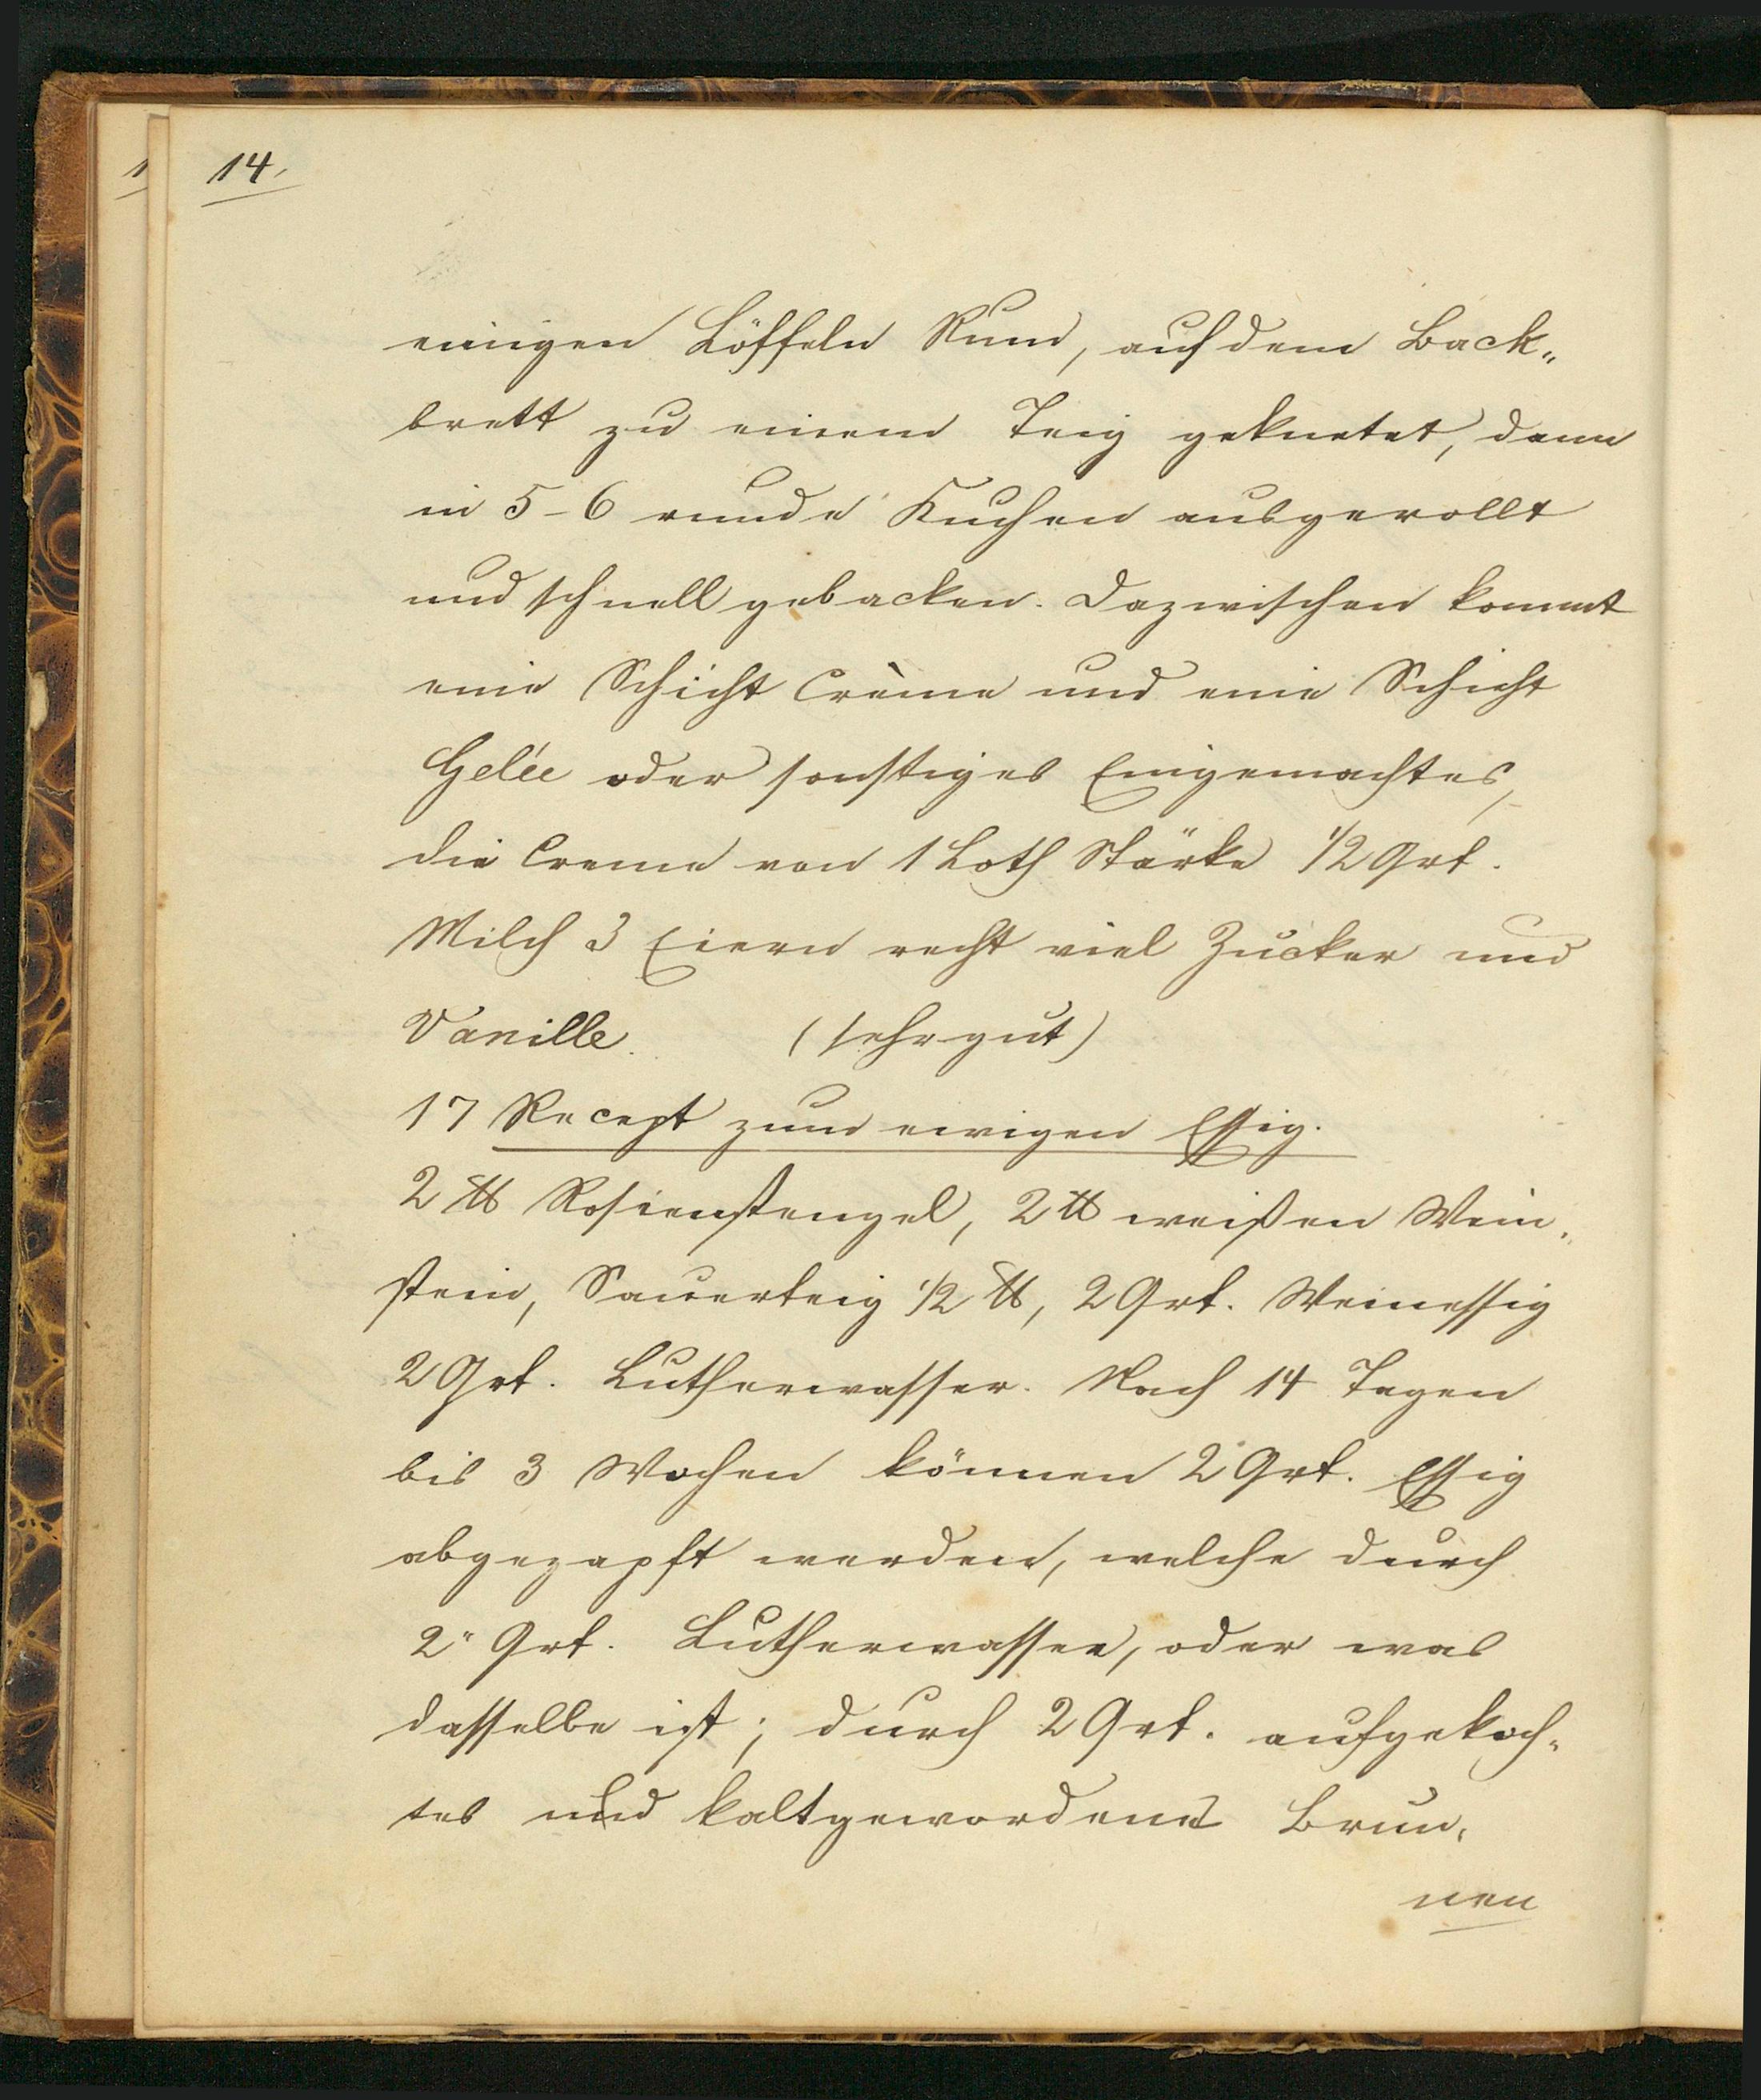 14.
einigen Löffeln Rum, auf dem Back„
brett zu einem Teig geknetet, dann
in 5-6 runde Kuchen ausgerollt
und schnell gebacken. Dazwischen kommt
eine Schicht Crème und eine Schicht
Gelée oder sonstiges Eingemachtes,
die Creme von 1 Loth Stärke 1/2 Qrt.
Milch 3 Eiern recht viel Zucker und
Vanille. (sehr gut)
17 Recept zum ewigen Essig.
2 ℔ Rosienstengel, 2 ℔ weißen Wein„
stein, Sauerteig 1/2 ℔, 2 Qrt. Weinessig
2 Qrt. Lutherwasser. Nach 14 Tagen
bis 3 Wochen können 2 Qrt. Essig
abgezapft werden, welche durch
2 Qrt. Lutherwasser, oder was
dasselbe ist; durch 2 Qrt. aufgekoch„
tes und kaltgewordenes Brun„
nen